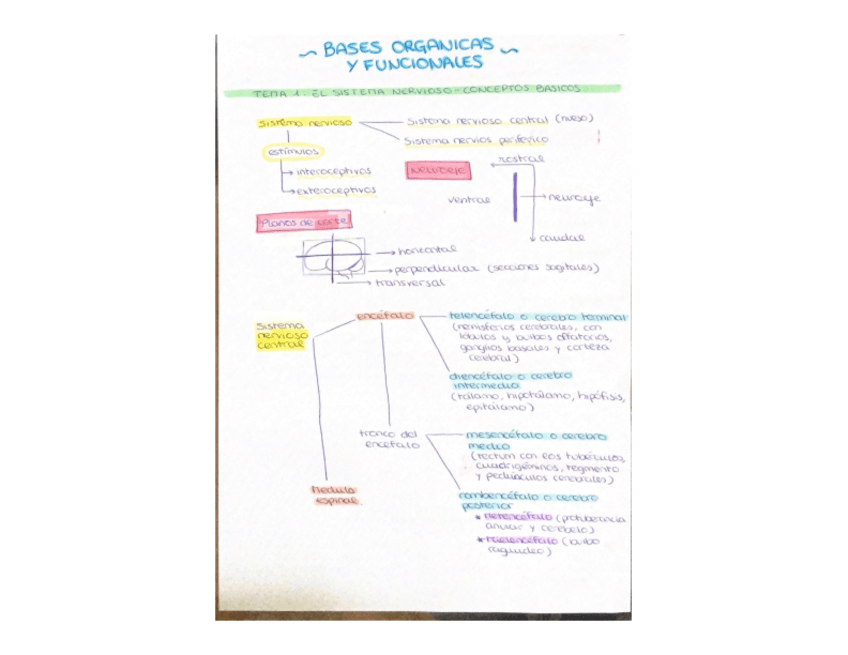 ~ BASES ORGANICAS ~
Y FUNCIONALES
TEMA 1: EL SISTEMA NERVIOSO - CONCEPTOS BASICOS
Sistema nervioso
Sistema nervioso central (hueso)
Sistema nervios periferico
estímulos
interoceptivos
exteroceptivos
Neuroeje
rostral
ventral
neuroeje
caudal
Planos de corte
horizontal
perpendicular (secciones sagitales)
transversal
Sistema
nervioso
central
encéfalo
telencéfalo o cerebro terminal
(hemisferios cerebrales, con
lóbulos y bulbos olfatorios,
ganglios basales y corteza
cerebral)
diencéfalo o cerebro
intermedio
(tálamo, hipotálamo, hipófisis,
epitálamo)
tronco del
encéfalo
mesencéfalo o cerebro
medio
(tectum con los tubérculos,
cuadrigéminos, tegmento
y pedúnculos cerebrales)
rombencéfalo o cerebro
posterior
* Metencéfalo (protuberancia
anular y cerebelo)
* Mielencéfalo (bulbo
raquídeo)
Medula
espinal